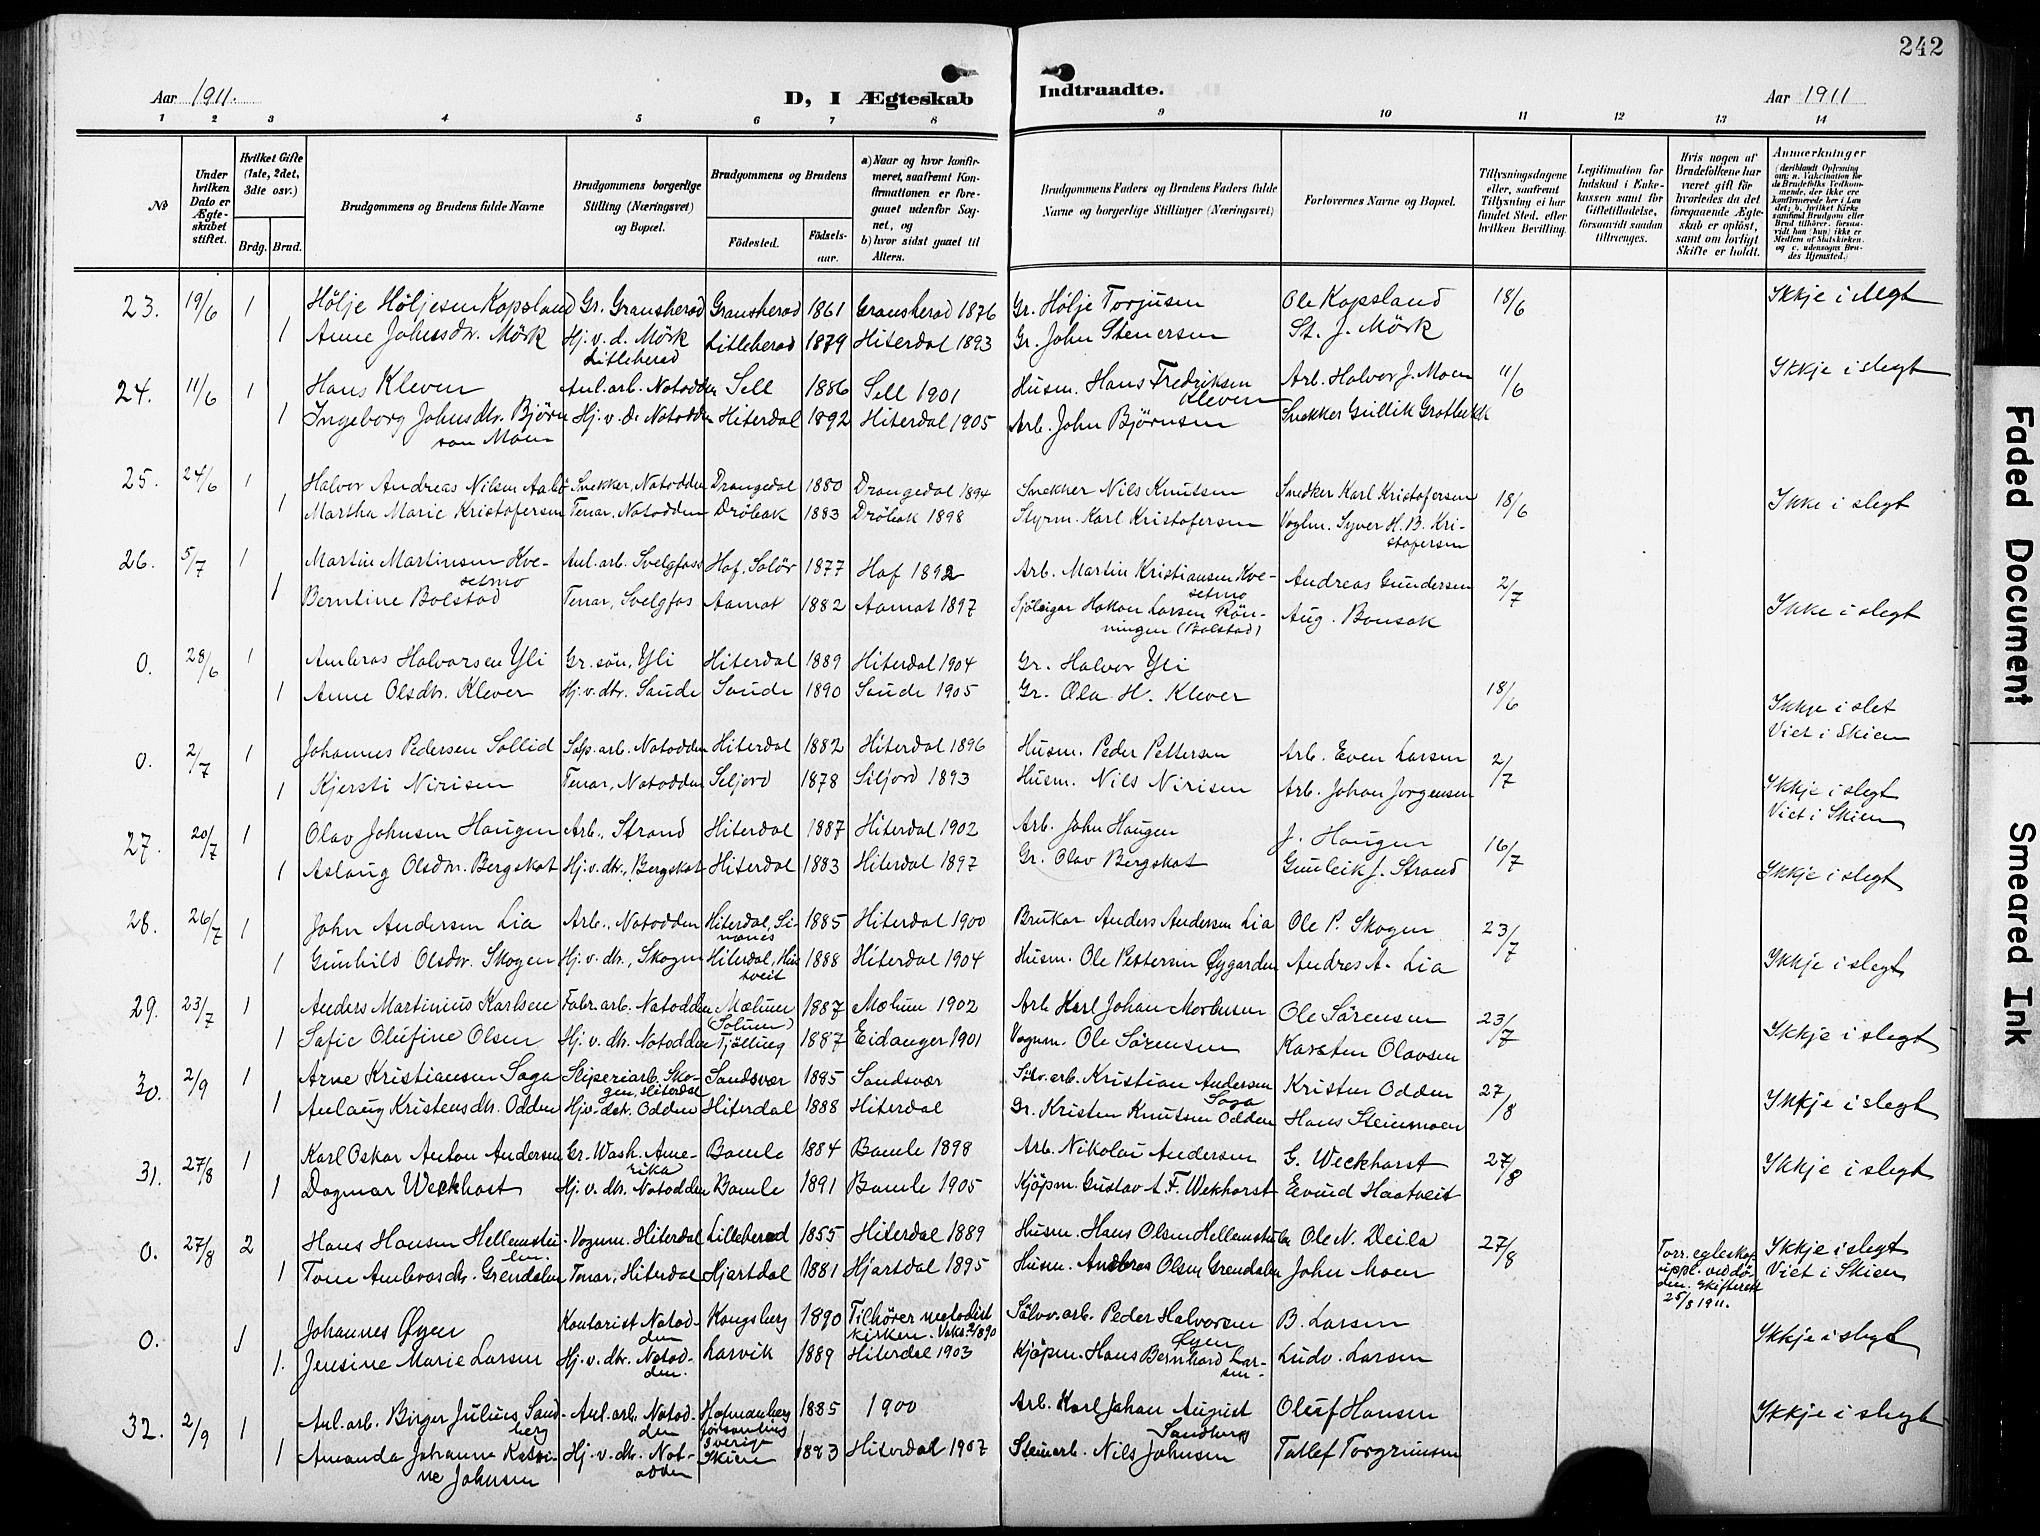 242
Aar 1911.
D, I Ægteskab
Indtraadte.
Aar 1911
1 2 3 4 5 6 7 8 9 10 11 12 13 14
No
Under hvilken Dato er Ægteskabet stiftet.
Hvilket Gifte (1ste, 2det, 3die osv.)
Brdg. Brud.
Brudgommens og Brudens fulde Navne
Brudgommens borgerlige Stilling (Næringsvei) og Bopæl.
Brudgommens og Brudens
Födested.
Födsels-aar.
a) Naar og hvor konfirmeret, saafremt Konfirmationen er foregaaet udenfor Sognet, og
b) hvor sidst gaaet til Alters.
Brudgommens Faders og Brudens Faders fulde Navne og borgerlige Stillinger (Næringsvei)
Forlovernes Navne og Bopæl.
Tillysningsdagene eller, saafremt Tillysning ei har fundet Sted, efter hvilken Bevilling.
Legitimation for Indskud i Enkekassen samt for Giftetilladelse, forsaavidt saadan tiltrænges.
Hvis nogen af Brudefolkene har været gift för hvorledes da det foregaaende Ægteskab er oplöst, samt om lovligt Skifte er holdt.
Anmærkninger
23. 19/6 1 Hölje Höljesen Kopsland Gr. Gransherad Gransherad 1861 Gransherad 1876 Gr. Hölje Torjusen Ole Kopsland 18/6 Ikkje i slegt
1 Anne Johnsdtr. Mörk Hj. v. d. Mörk Litleherad Litleherad 1879 Hiterdal 1893 Gr. John Stenersen St. J. Mörk
24. 11/6 1 Hans Kleven Anl. arb. Notodden Sell 1886 Sell 1901 Husm. Hans Fredriksen Kleven Arb. Halvor J. Moen 11/6 Ikkje i slegt
1 Ingeborg Johnsdtr. Björnson Moen Hj. v. d. Notodden Hiterdal 1892 Hiterdal 1905 Arb. John Björnsen Snekker Gullik Grotbekk
25. 24/6 1 Halvor Andreas Nilsen Aabö Snekker, Notodden Drangedal 1880 Drangedal 1894 Snekker Nils Knutsen Snedker Karl Kristofersen 18/6 Ikke i slegt
1 Martha Marie Kristofersen Tenar, Notodden Dröbak 1883 Dröbak 1898 Styrm. Karl Kristofersen Voglm. Syver H. B. Kristofersen
26. 5/7 1 Martin Martinsen Kvesetmo Anl. arb. Svelgfoss Hof, Solör 1877 Hof 1892 Arb. Martin Kristiansen Kvesetmo Andreas Gundersen 2/7 Ikke i slegt
1 Berntine Bolstad Tenar, Svelgfos Aamot 1882 Aamot 1897 Sjöleigar Hakon Larsen Rönningen (Bolstad) Aug. Bonsak
0. 28/6 1 Ambros Halvorsen Yli Gr. sön, Yli Hiterdal 1889 Hiterdal 1904 Gr. Halvor Yli
1 Anne Olsdtr. Klever Hj. v. dtr. Saude Saude 1890 Saude 1905 Gr. Ola H. Klever 18/6 Ikkje i slet Viet i Skien
0. 2/7 1 Johannes Pedersen Sollid Sop. arb. Notodden Hiterdal 1882 Hiterdal 1896 Husm. Peder Pettersen Arb. Even Larsen 2/7
1 Kjersti Nirisen Tenar, Notodden Seljord 1878 Siljord 1893 Husm. Nils Nirisen Arb. Johan Jorgensen Ikkje i slegt Viet i Skien
27. 20/7 1 Olav Johnsen Haugen Arb., Strand Hiterdal 1887 Hiterdal 1902 Arb. John Haugen J. Haugen 16/7
1 Aslaug Olsdtr. Bergskot Hj. v. dtr., Bergskot Hiterdal 1883 Hiterdal 1897 Gr. Olav Bergskot Gunleik J. Strand Ikkje i slegt
28. 26/7 1 John Andersen Lia Arb., Notodden Hiterdal, Simones 1885 Hiterdal 1900 Brukar Anders Andersen Lia Ole P. Skogen 23/7
1 Gunhild Olsdtr. Skogen Hj. v. dtr., Skogen Hiterdal, 1888 Hiterdal 1904 Husm. Ole Pettersen Øygarden Andres A. Lia Ikkje i slegt
29. 23/7 1 Anders Martinius Karlsen Fabr. arb. Notodden Mælum (Solum) 1887 Mælum 1902 Arb. Karl Johan Mortensen Ole Sörensen 23/7
1 Sofie Olufine Olsen Hj. v. dtr. Notodden Tjölling 1887 Eidanger 1901 Vognm. Ole Sörensen Karsten Olavsen Ikkje i slegt
30. 2/9 1 Arne Kristiansen Saga Sliperiarb. Skogen, Hiterdal Sandsvær 1885 Sandsvær Sölv. arb. Kristian Andersen Saga Kristen Odden 27/8
1 Anlaug Kristensdtr. Odden Hj. v. dtr. Odden Hiterdal 1888 Hiterdal Gr. Kristen Knutsen Odden Hans Steinmoen Ikkje i slegt
31. 27/8 1 Karl Oskar Anton Andersen Gr. Wash. Amerika Bamle 1884 Bamle 1898 Arb. Nikolai Andersen G. Weckhorst 27/8 Ikkje i slegt
1 Dagmar Weckhost Hj. v. dtr. Notodden Bamle 1891 Bamle 1905 Kjöpm. Gustav A. F. Wekhorst Eivind Haatveit
0. 27/8 2 Hans Hansen Hellemstulen Vognm. Hiterdal Lilleherad 1855 Hiterdal 1889 Husm. Hans Olsen Hellemstulen Ole N. Deila 27/8 Forr. egteskap uppl. ved döden. Skifterett 25/8 1911. Ikkje i slegt Viet i Skien
1 Tone Ambrosdtr. Grendalen Tenar, Hiterdal Hjartdal 1881 Hjartdal 1895 Husm. Andbros Olsen Grendalen John Moen
0. 1 Johannes Øyen Kontorist Notodden Kongsberg 1890 Tilhörer metodistkirken. Vaks. 2/8 90 Sölvv. arb. Peder Halvorsen Øyen B. Larsen Ikkje i slegt
1. Jensine Marie Larsen Hj. v. dtr. Notodden. Larvik 1889 Hiterdal 1903 Kjöpm. Hans Bernhard Larsen Ludv. Larsen
32. 2/9 1 Anl. arb. Birger Julius Sandberg Anl. arb. Notodden Sverige 1885 1900 Arb. Karl Johan August Sandberg Oluf Hansen Ikkje i slegt
1 Amanda Johanne Katrine Johnsen Hj. v. dtr. Notodden Skien 1883 Hiterdal 1907 Steinarb. Nils Johnsen Tallef Torgrimsen
Faded Document
Smeared Ink